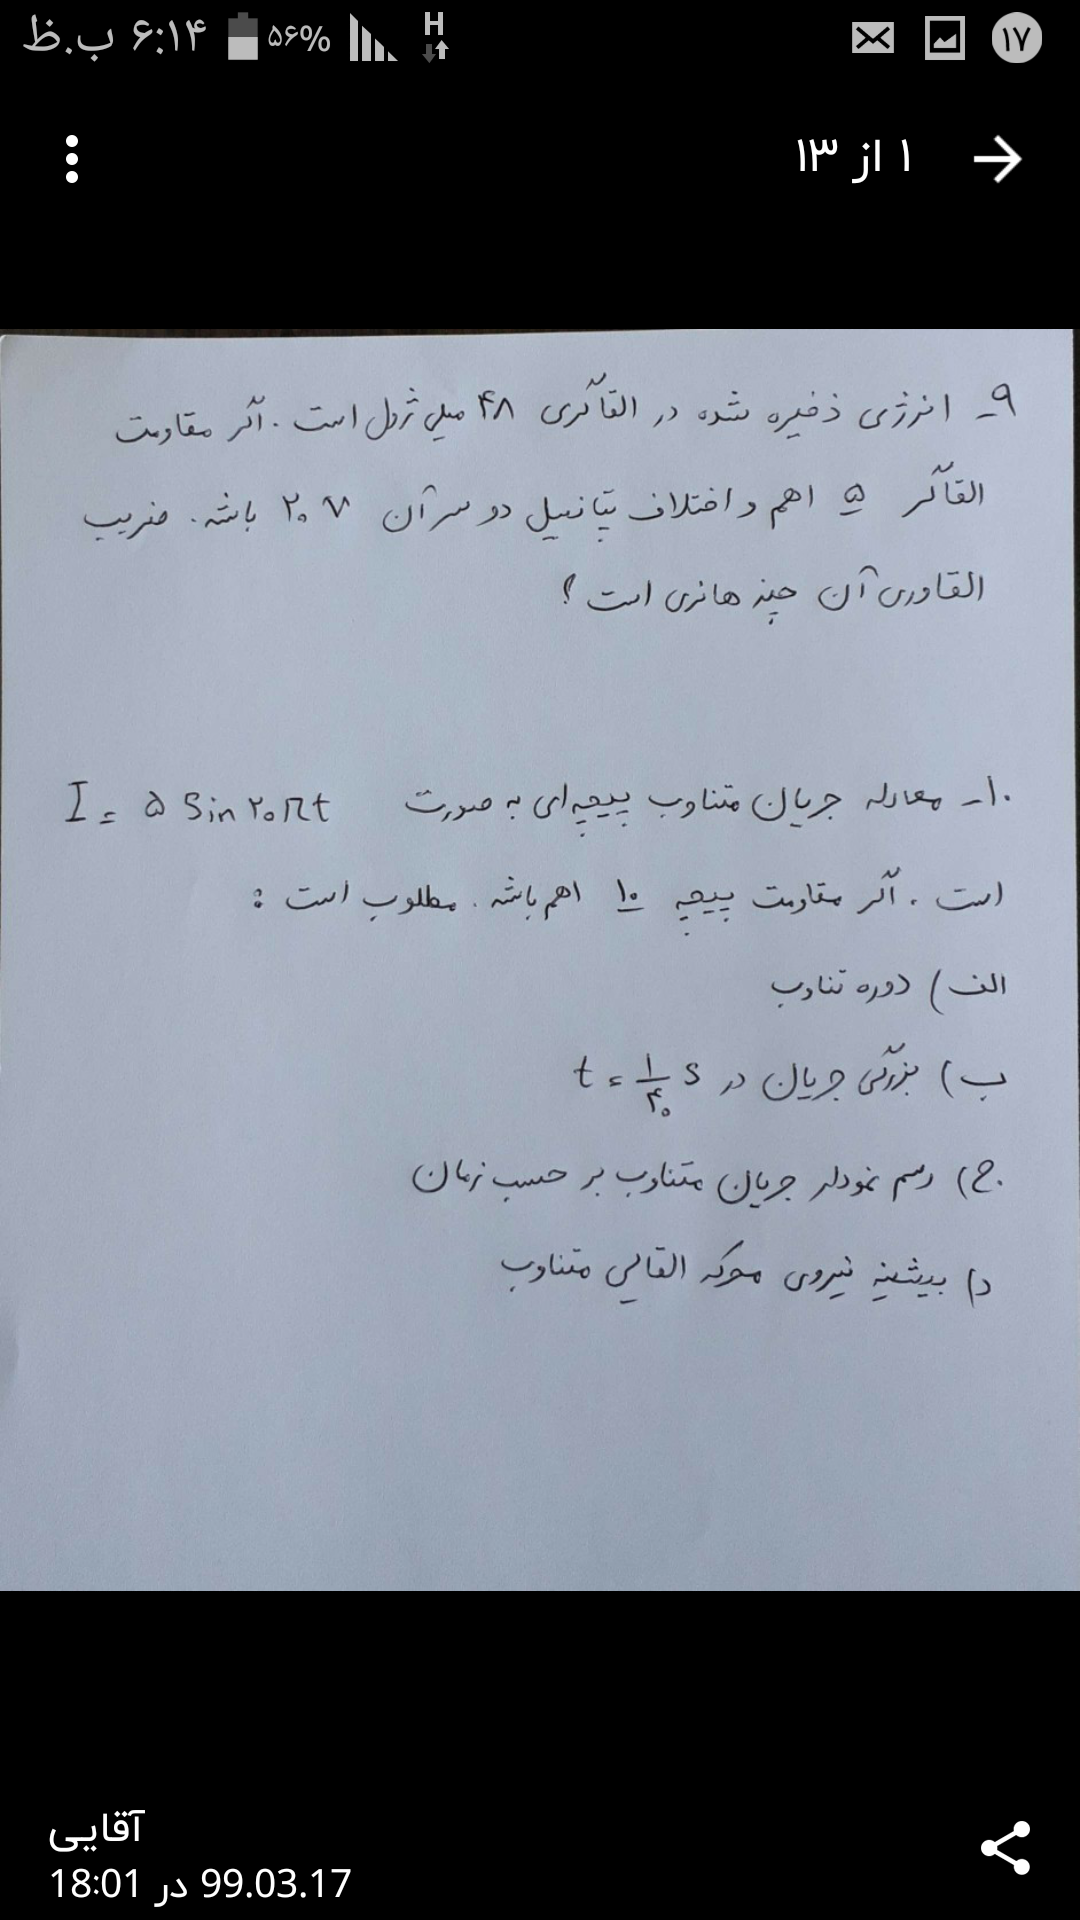 ۶:۱۴ ب.ظ ۵۶% H ۱۷
۱ از ۱۳
۹- انرژی ذخیره شده در القاگری ۴۸ میلی ژول است. اگر مقاومت
القاگر ۵ اهم و اختلاف پتانسیل دو سر آن ۲۰ V باشد. ضریب
القاوری آن چند هانری است؟
۱۰- معادله جریان متناوب پیچه‌ای به صورت I = ۵ Sin ۲۰πt
است. اگر مقاومت پیچه ۱۰ اهم باشد. مطلوب است:
الف) دوره تناوب
ب) بزرگی جریان در t = ۱/۴۰ s
ج) رسم نمودار جریان متناوب بر حسب زمان
د) بیشینه نیروی محرکه القایی متناوب
آقایی
99.03.17 در 18:01